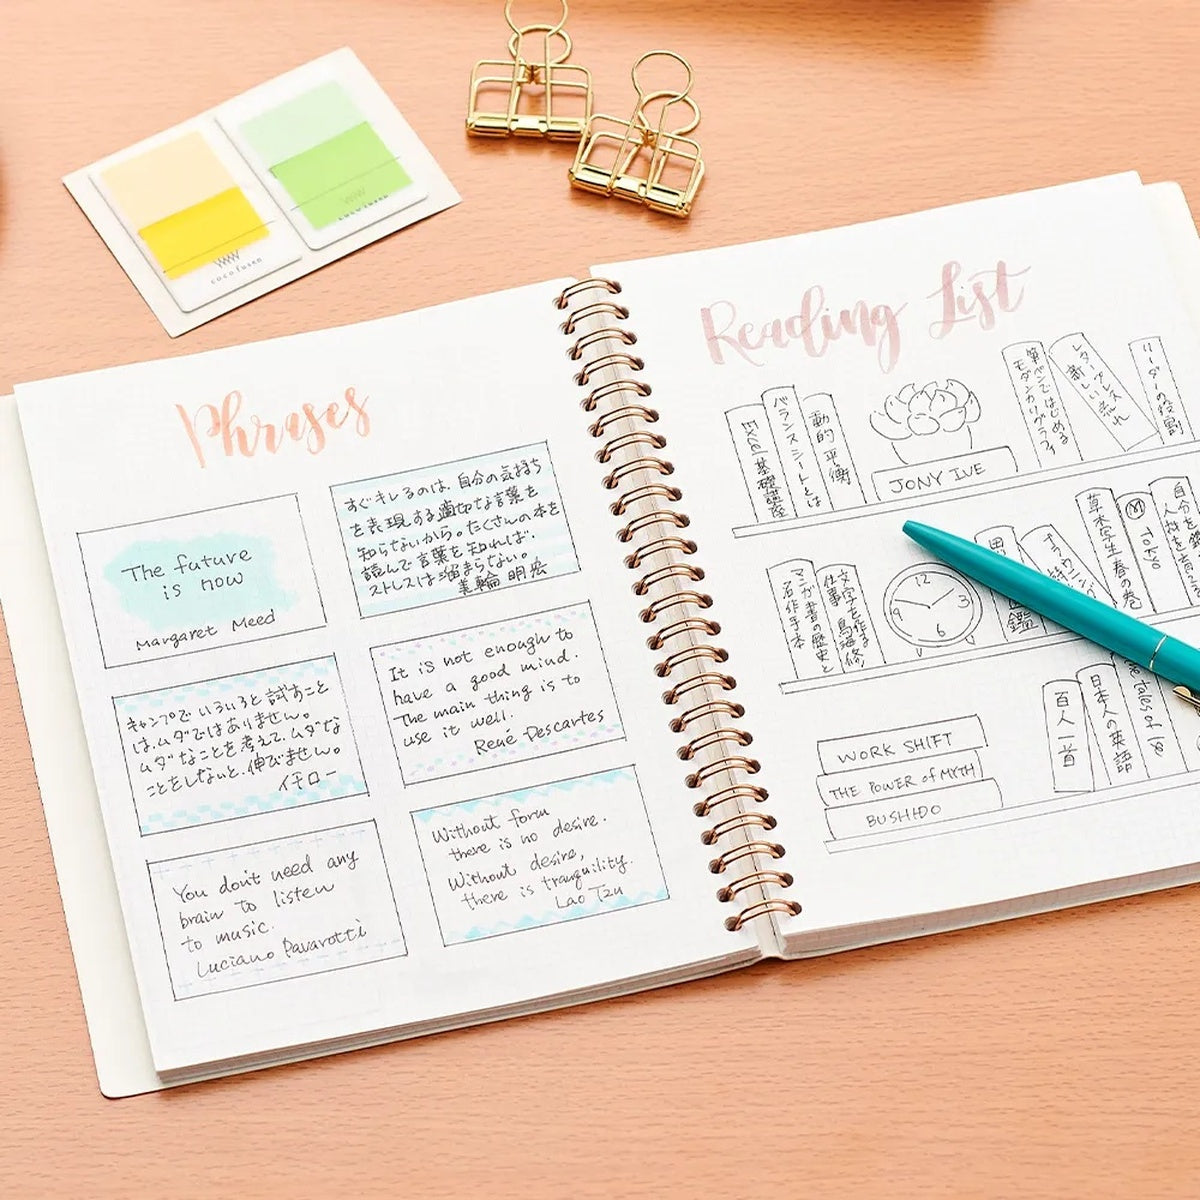 cocofusen
cocofusen
Phrases
The future
is now
Margaret Meed
すぐキレるのは、自分の気持ち
を表現する適切な言葉を
知らないから。たくさんの本を
読んで言葉を知れば、
ストレスは溜まらない。
美輪 明宏
キャンプで いろいろと 試すこと
は、ムダではありません。
ムダなことを考えて、ムダな
ことをしないと、伸びません。
イチロー
It is not enough to
have a good mind.
The main thing is to
use it well.
René Descartes
You don't need any
brain to listen
to music.
Luciano Pavarotti
Without form
there is no desire.
Without desire,
there is tranquility.
Lao Tzu
Reading List
Excel 基礎講座
バランスシートとは
動的 平衡
JONY IVE
筆ペンではじめる
モダンカリグラフィ
レタープレス
新しい流れ
リーダーの役割
マンガ 書の歴史と
名作手本
文字を作る
仕事 鳥海 修
12
3
6
9
図鑑
草木写生 春の巻
Tokyo
自分を
人生を
WORK SHIFT
THE POWER of MYTH
BUSHIDO
百人一首
日本人の英語
the tales of